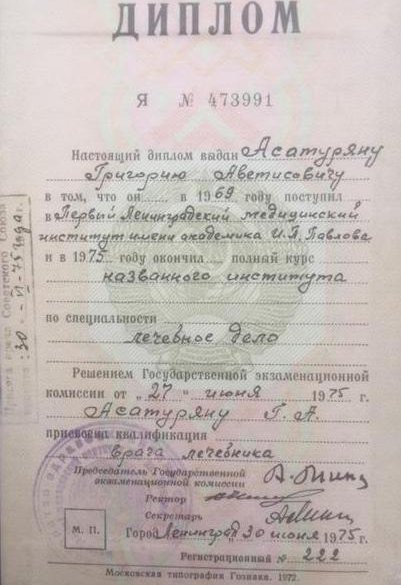 ДИПЛОМ
Я № 473991
Настоящий диплом выдан Асатуряну
Григорию Аветисовичу
в том, что он в 1969 году поступил
в Первый Ленинградский медицинский
институт имени академика И.П. Павлова
и в 1975 году окончил полный курс
названного института
по специальности
лечебное дело
Решением Государственной экзаменационной
комиссии от "27" июня 1975 г.
Асатуряну Г. А.
присвоена квалификация
врача лечебника
Председатель Государственной
экзаменационной комиссии
Ректор
Секретарь
М. П.
Город Ленинград 30 июня 1975 г.
Регистрационный № 222
Московская типография Гознака. 1972.
врача Советского Союза
30 - VI - 75 года